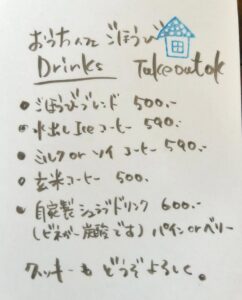 おうちcafe ごほうび
Drinks Takeout ok
• ごほうびブレンド 500.-
• 水出し Iceコーヒー 590.-
• ミルク or ソイ コーヒー 590.-
• 玄米コーヒー 500.
• 自家製シュラブドリンク 600.-
(ビネガー炭酸です) パイン or ベリー
クッキーも どうぞよろしく。